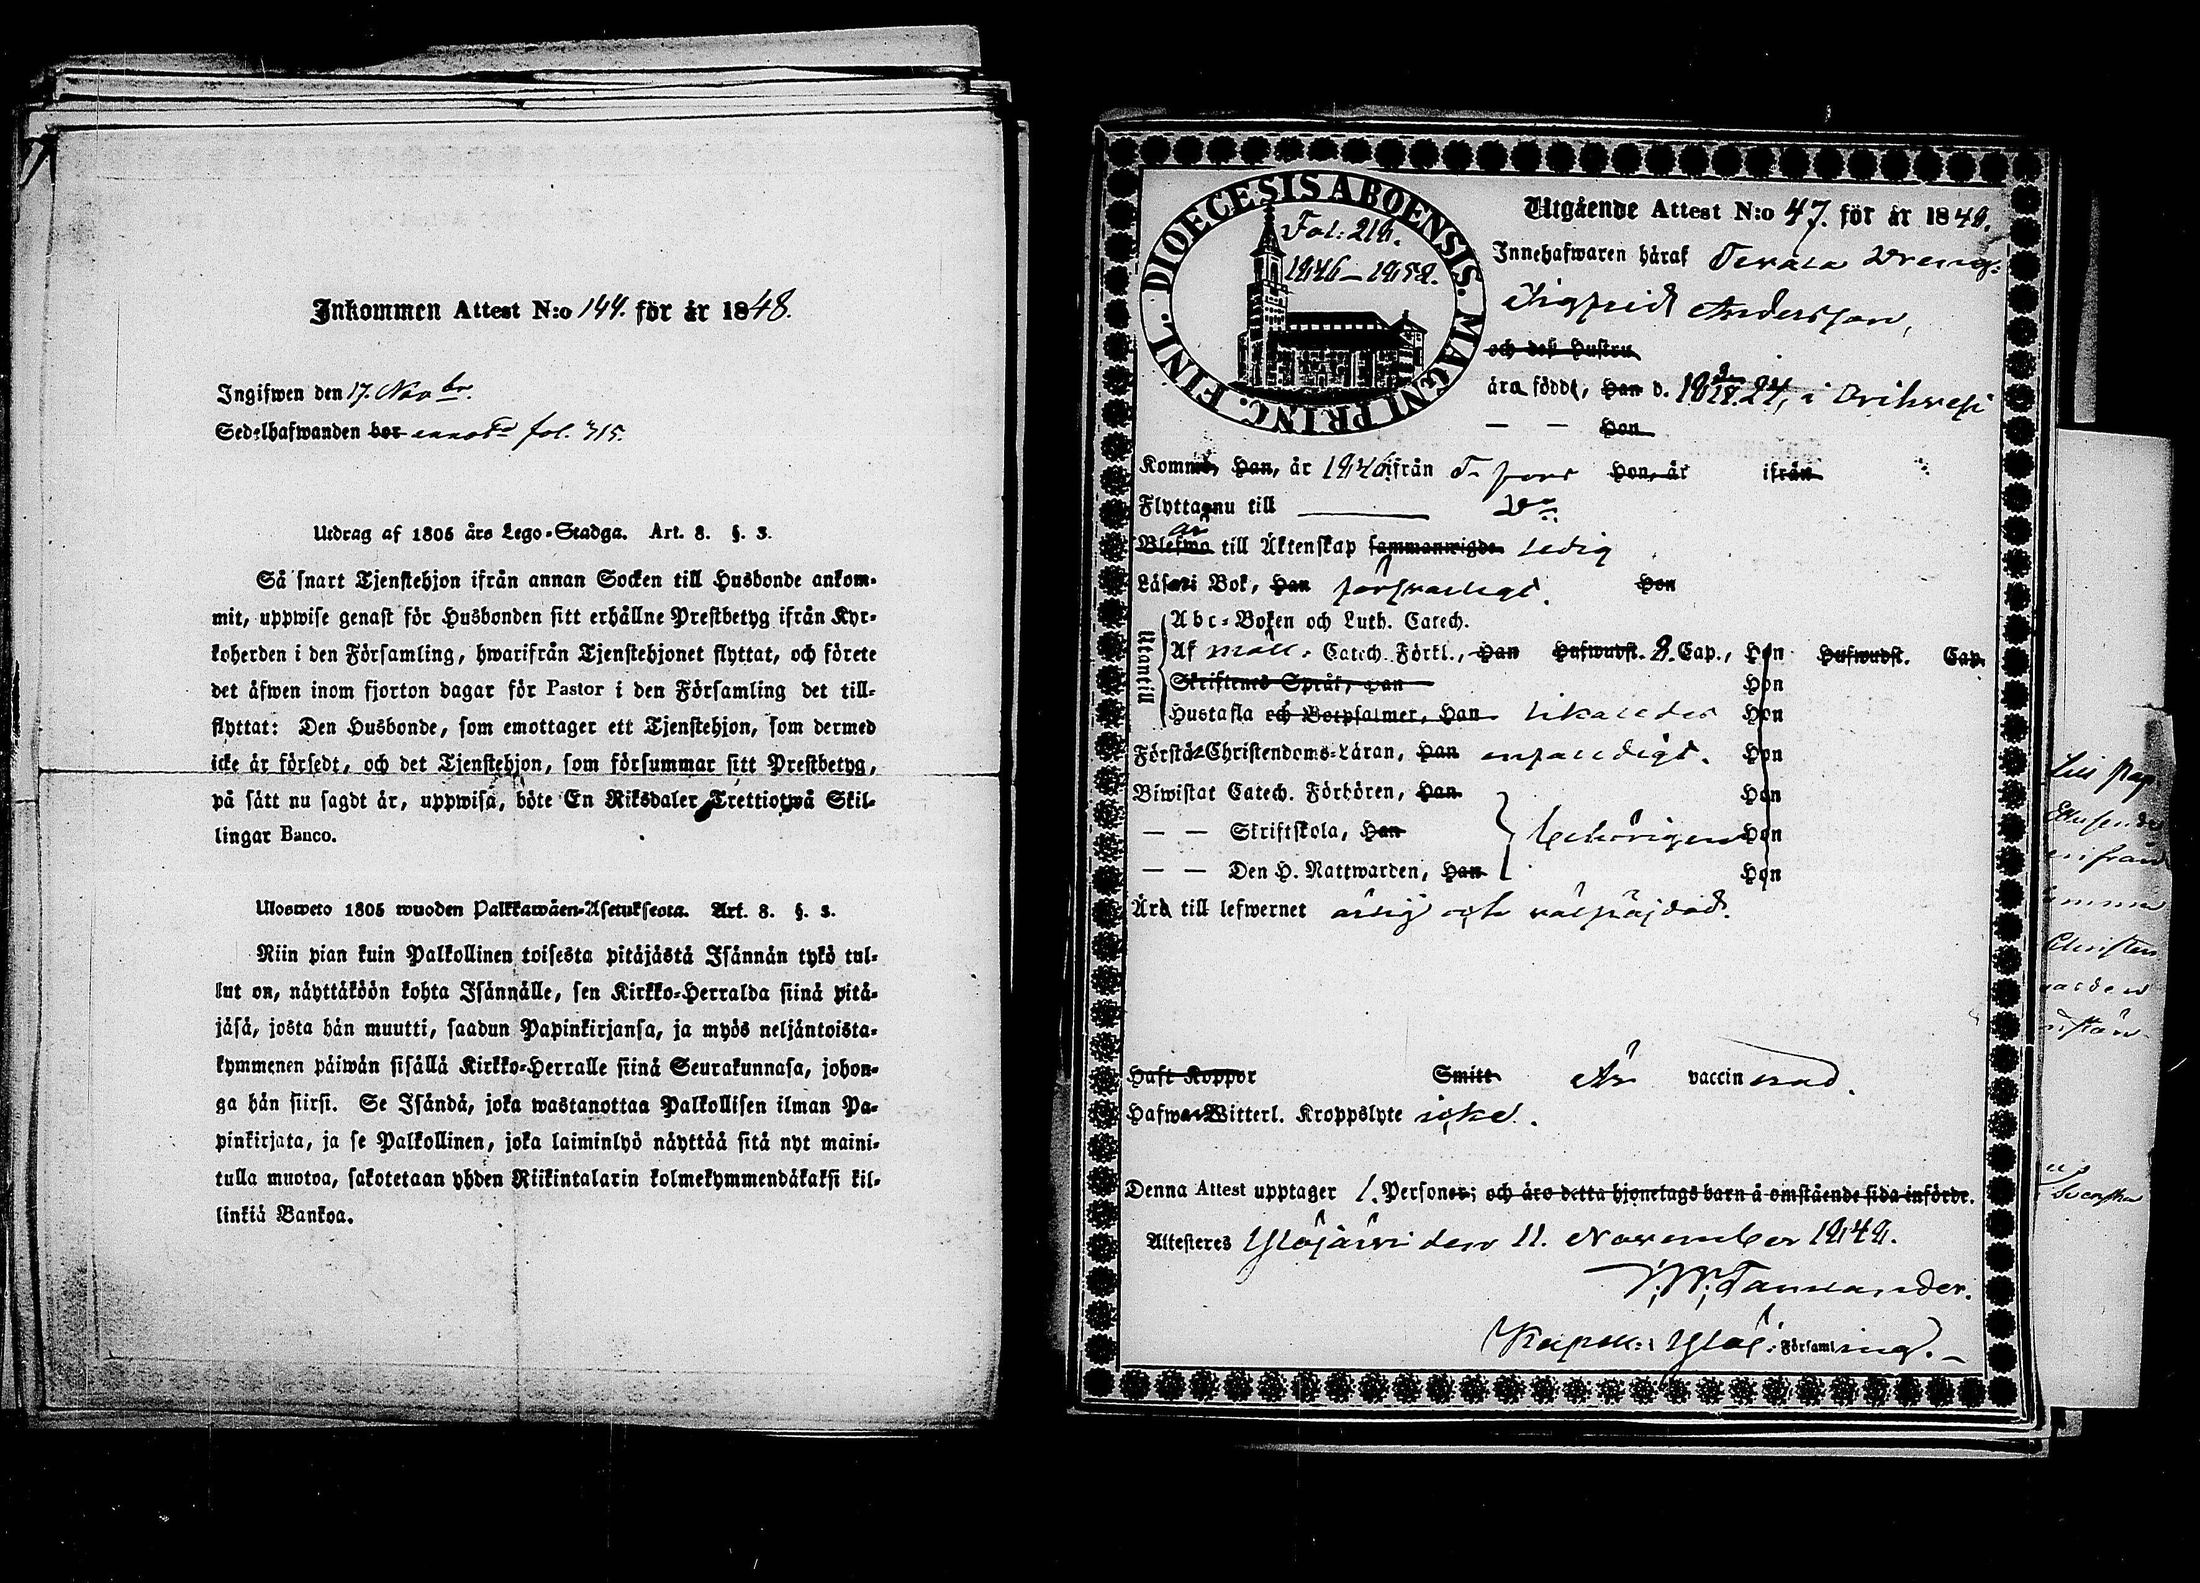 Inkommen Attest N:o 144. för år 1848.
Ingifwen den 17. Novbr.
Sedelhafwanden bor fol. 315.
Utdrag af 1805 års Lego-Stadga. Art. 8. §. 3.
Så snart Tjenstehjon ifrån annan Socken till Husbonde ankom-
mit, uppwise genast för Husbonden sitt erhållne Prestbetyg ifrån Kyr-
koherden i den Församling, hwarifrån Tjenstehjonet flyttat, och förete
det äfwen inom fjorton dagar för Pastor i den Församling det till-
flyttat: Den Husbonde, som emottager ett Tjenstehjon, som dermed
icke är försedt, och det Tjenstehjon, som försummar sitt Prestbetyg,
på sätt nu sagdt är, uppwisa, böte En Riksdaler Trettiotwå Skil-
lingar Banco.
Ulosweto 1805 wuoden Palkkawäen-Asetuksesta. Art. 8. §. 3.
Niin pian kuin Palkollinen toisesta pitäjästä Isännän tykö tul-
lut on, näyttäköön kohta Isännälle, sen Kirkko-Herralda siinä pitä-
jäsä, josta hän muutti, saadun Papinkirjansa, ja myös neljäntoista-
kymmenen päiwän sisällä Kirkko-Herralle siinä Seurakunnasa, johon-
ga hän siirsi. Se Isändä, joka wastanottaa Palkollisen ilman Pa-
pinkirjata, ja se Palkollinen, joka laiminlyö näyttää sitä nyt maini-
tulla muotoa, sakotetaan yhden Riikintalarin kolmekymmendäkaksi kil-
linkiä Bankoa.
DIOECESIS ABOENSIS. MAGNI PRINC. FINL.
Fol: 216.
1846–1852.
Utgående Attest N:o 47. för år 1848.
Innehafwaren häraf Dreng.
Sigfrid Andersson,
och deß Hustru
äro född, Han d. 18 24, i Orihvesi
— — Hon
Komm Han, år 1846 ifrån T. fors Hon, år ifrån
Flytta nu till Do
är
Blefwo till Äktenskap sammanwigde ledig
Läser i Bok, Han förswarligt. Hon
Utantill
Abc-Boken och Luth. Catech.
Af Catech. Förkl., Han Hufwudst. 2. Cap., Hon Hufwudst. Cap.
Skriftenes Språk, Han Hon
Hustafla och Botpsalmer, Han likaledes Hon
Förstår Christendoms-Läran, Han enfaldigt. Hon
Biwistat Catech. Förhören, Han Hon
— — Skriftskola, Han behörigen Hon
— — Den H. Nattwarden, Han Hon
Är till lefwernet ärlig och välfräjdad.
Haft Koppor Smitt Är vaccinerad.
Hafwa Witterl. Kroppslyte icke.
Denna Attest upptager 1. Personer; och äro detta hjonelags barn å omstående sida införde.
Attesteres Ylöjärvi den 11. November 1848.
Kapell: i Ylöj: Församling.